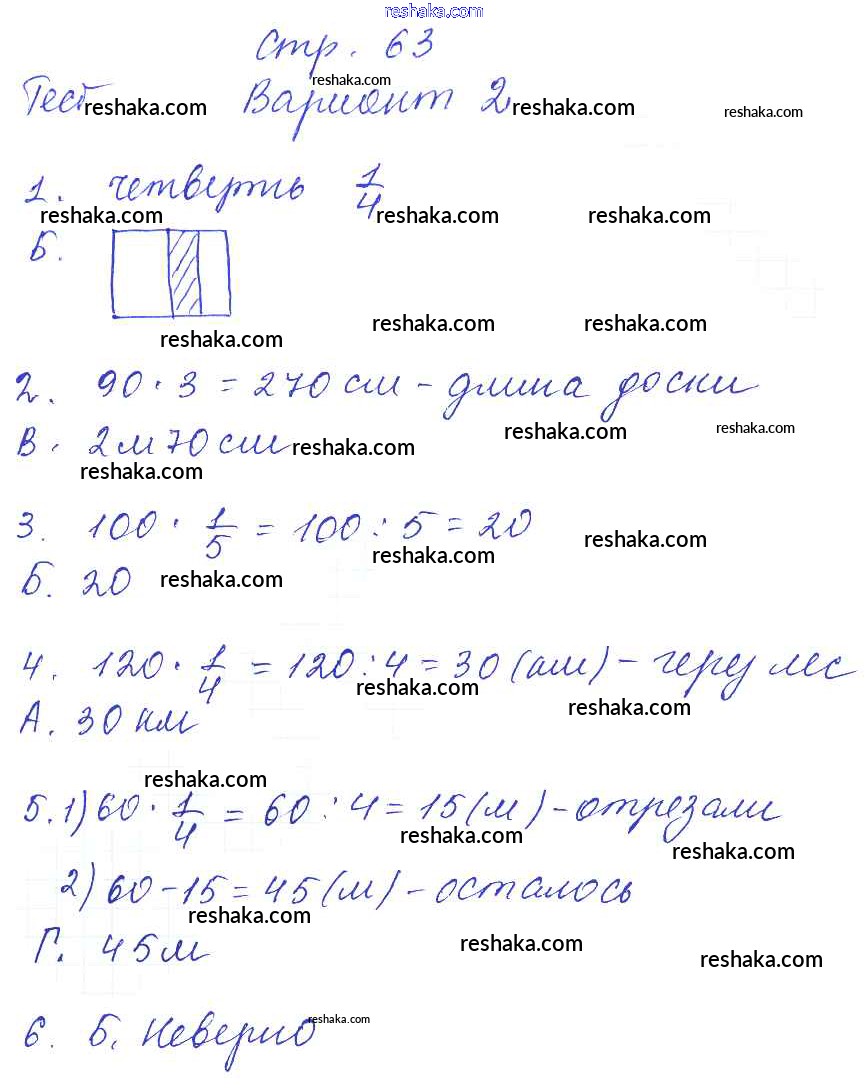 reshaka.com
Стр. 63
reshaka.com
Тест reshaka.com Вариант 2 reshaka.com reshaka.com
1. четверть 1/4
reshaka.com reshaka.com reshaka.com
Б.
reshaka.com reshaka.com reshaka.com
2. 90 · 3 = 270 см - длина доски
В. 2 м 70 см reshaka.com reshaka.com reshaka.com
reshaka.com
3. 100 · 1/5 = 100 : 5 = 20 reshaka.com
reshaka.com
Б. 20 reshaka.com
4. 120 · 1/4 = 120 : 4 = 30 (км) - через лес
reshaka.com
А. 30 км reshaka.com
reshaka.com
5. 1) 60 · 1/4 = 60 : 4 = 15 (м) - отрезали
reshaka.com reshaka.com
2) 60 - 15 = 45 (м) - осталось
reshaka.com
Г. 45 м reshaka.com reshaka.com
6. Б. Неверно reshaka.com